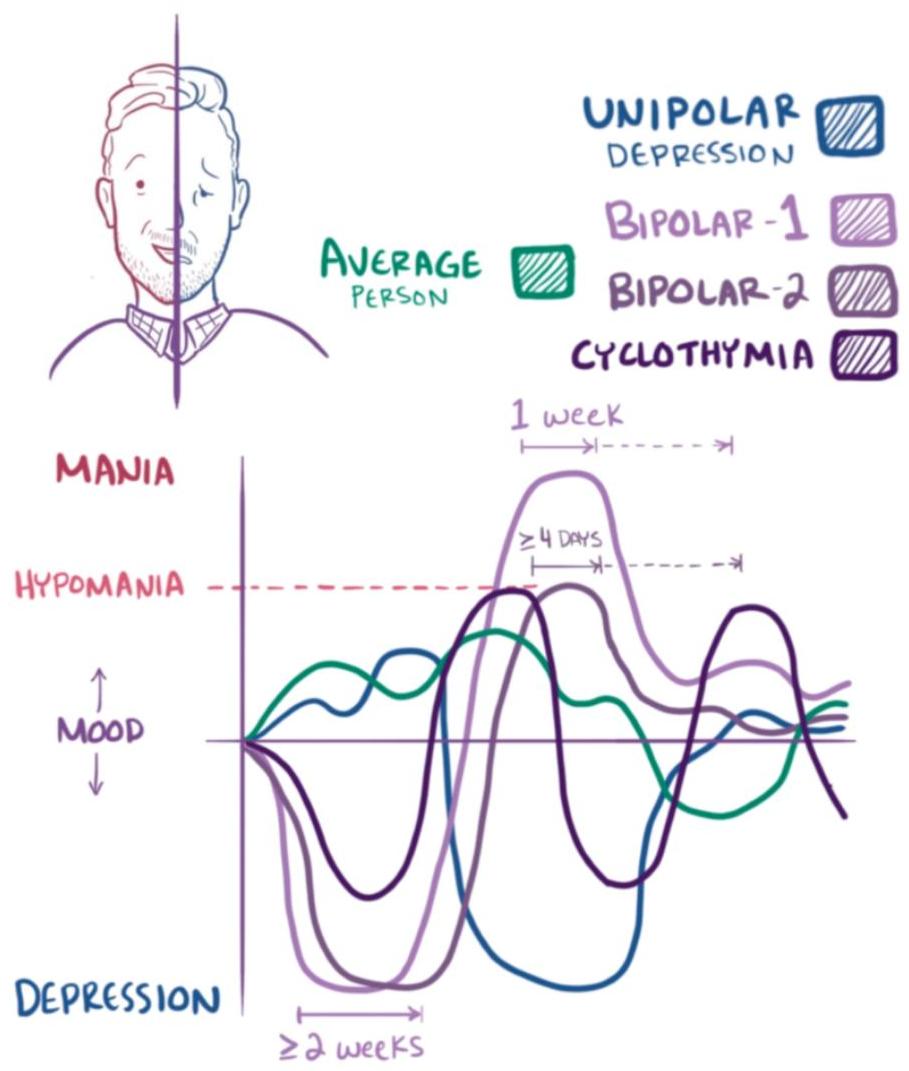 UNIPOLAR
DEPRESSION
BIPOLAR-1
AVERAGE
PERSON
BIPOLAR-2
CYCLOTHYMIA
1 week
MANIA
≥4 DAYS
HYPOMANIA
MOOD
DEPRESSION
≥2 weeks